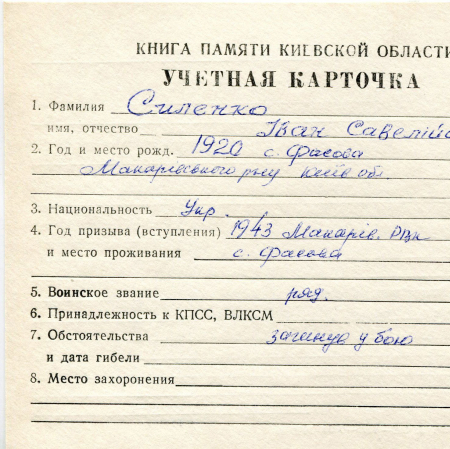 КНИГА ПАМЯТИ КИЕВСКОЙ ОБЛАСТИ
УЧЕТНАЯ КАРТОЧКА
1. Фамилия Силенко
имя, отчество Іван Савелій
2. Год и место рожд. 1920 с. Фасова
Макарівського р-ну Київ обл.
3. Национальность Укр.
4. Год призыва (вступления) 1943 Макарів. РВК
и место проживания с. Фасова
5. Воинское звание ряд.
6. Принадлежность к КПСС, ВЛКСМ
7. Обстоятельства загинув у бою
и дата гибели
8. Место захоронения